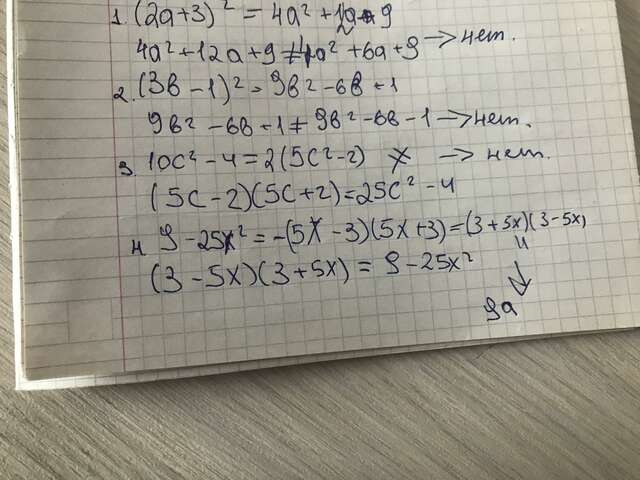 1. (2a+3)² = 4a²+12a+9
4a²+12a+9≠4a²+6a+9 → нет.
2. (3в-1)² = 9в²-6в+1
9в²-6в+1≠9в²-6в-1 → нет.
3. 10c²-4=2(5c²-2) ≠ → нет.
(5c-2)(5c+2)=25c²-4
4 9-25x²=-(5x-3)(5x+3)=(3+5x)(3-5x)
(3-5x)(3+5x)=9-25x²
да